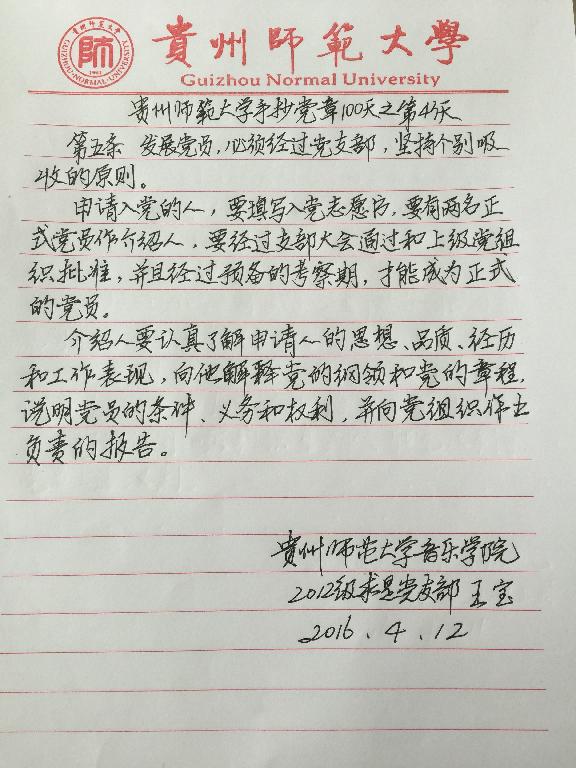 貴州師範大學
Guizhou Normal University
貴州師範大學
GUIZHOU·NORMAL·UNIVERSITY
師
1941
贵州师範大学手抄党章100天之第45天
第五条 发展党员,必须经过党支部,坚持个别吸
收的原则。
申请入党的人,要填写入党志愿书,要有两名正
式党员作介绍人,要经过支部大会通过和上级党组
织批准,并且经过预备的考察期,才能成为正式
的党员。
介绍人要认真了解申请人的思想、品质、经历
和工作表现,向他解释党的纲领和党的章程,
说明党员的条件、义务和权利,并向党组织作出
负责的报告。
贵州师范大学音乐学院
2012级求是党支部 王宝
2016.4.12